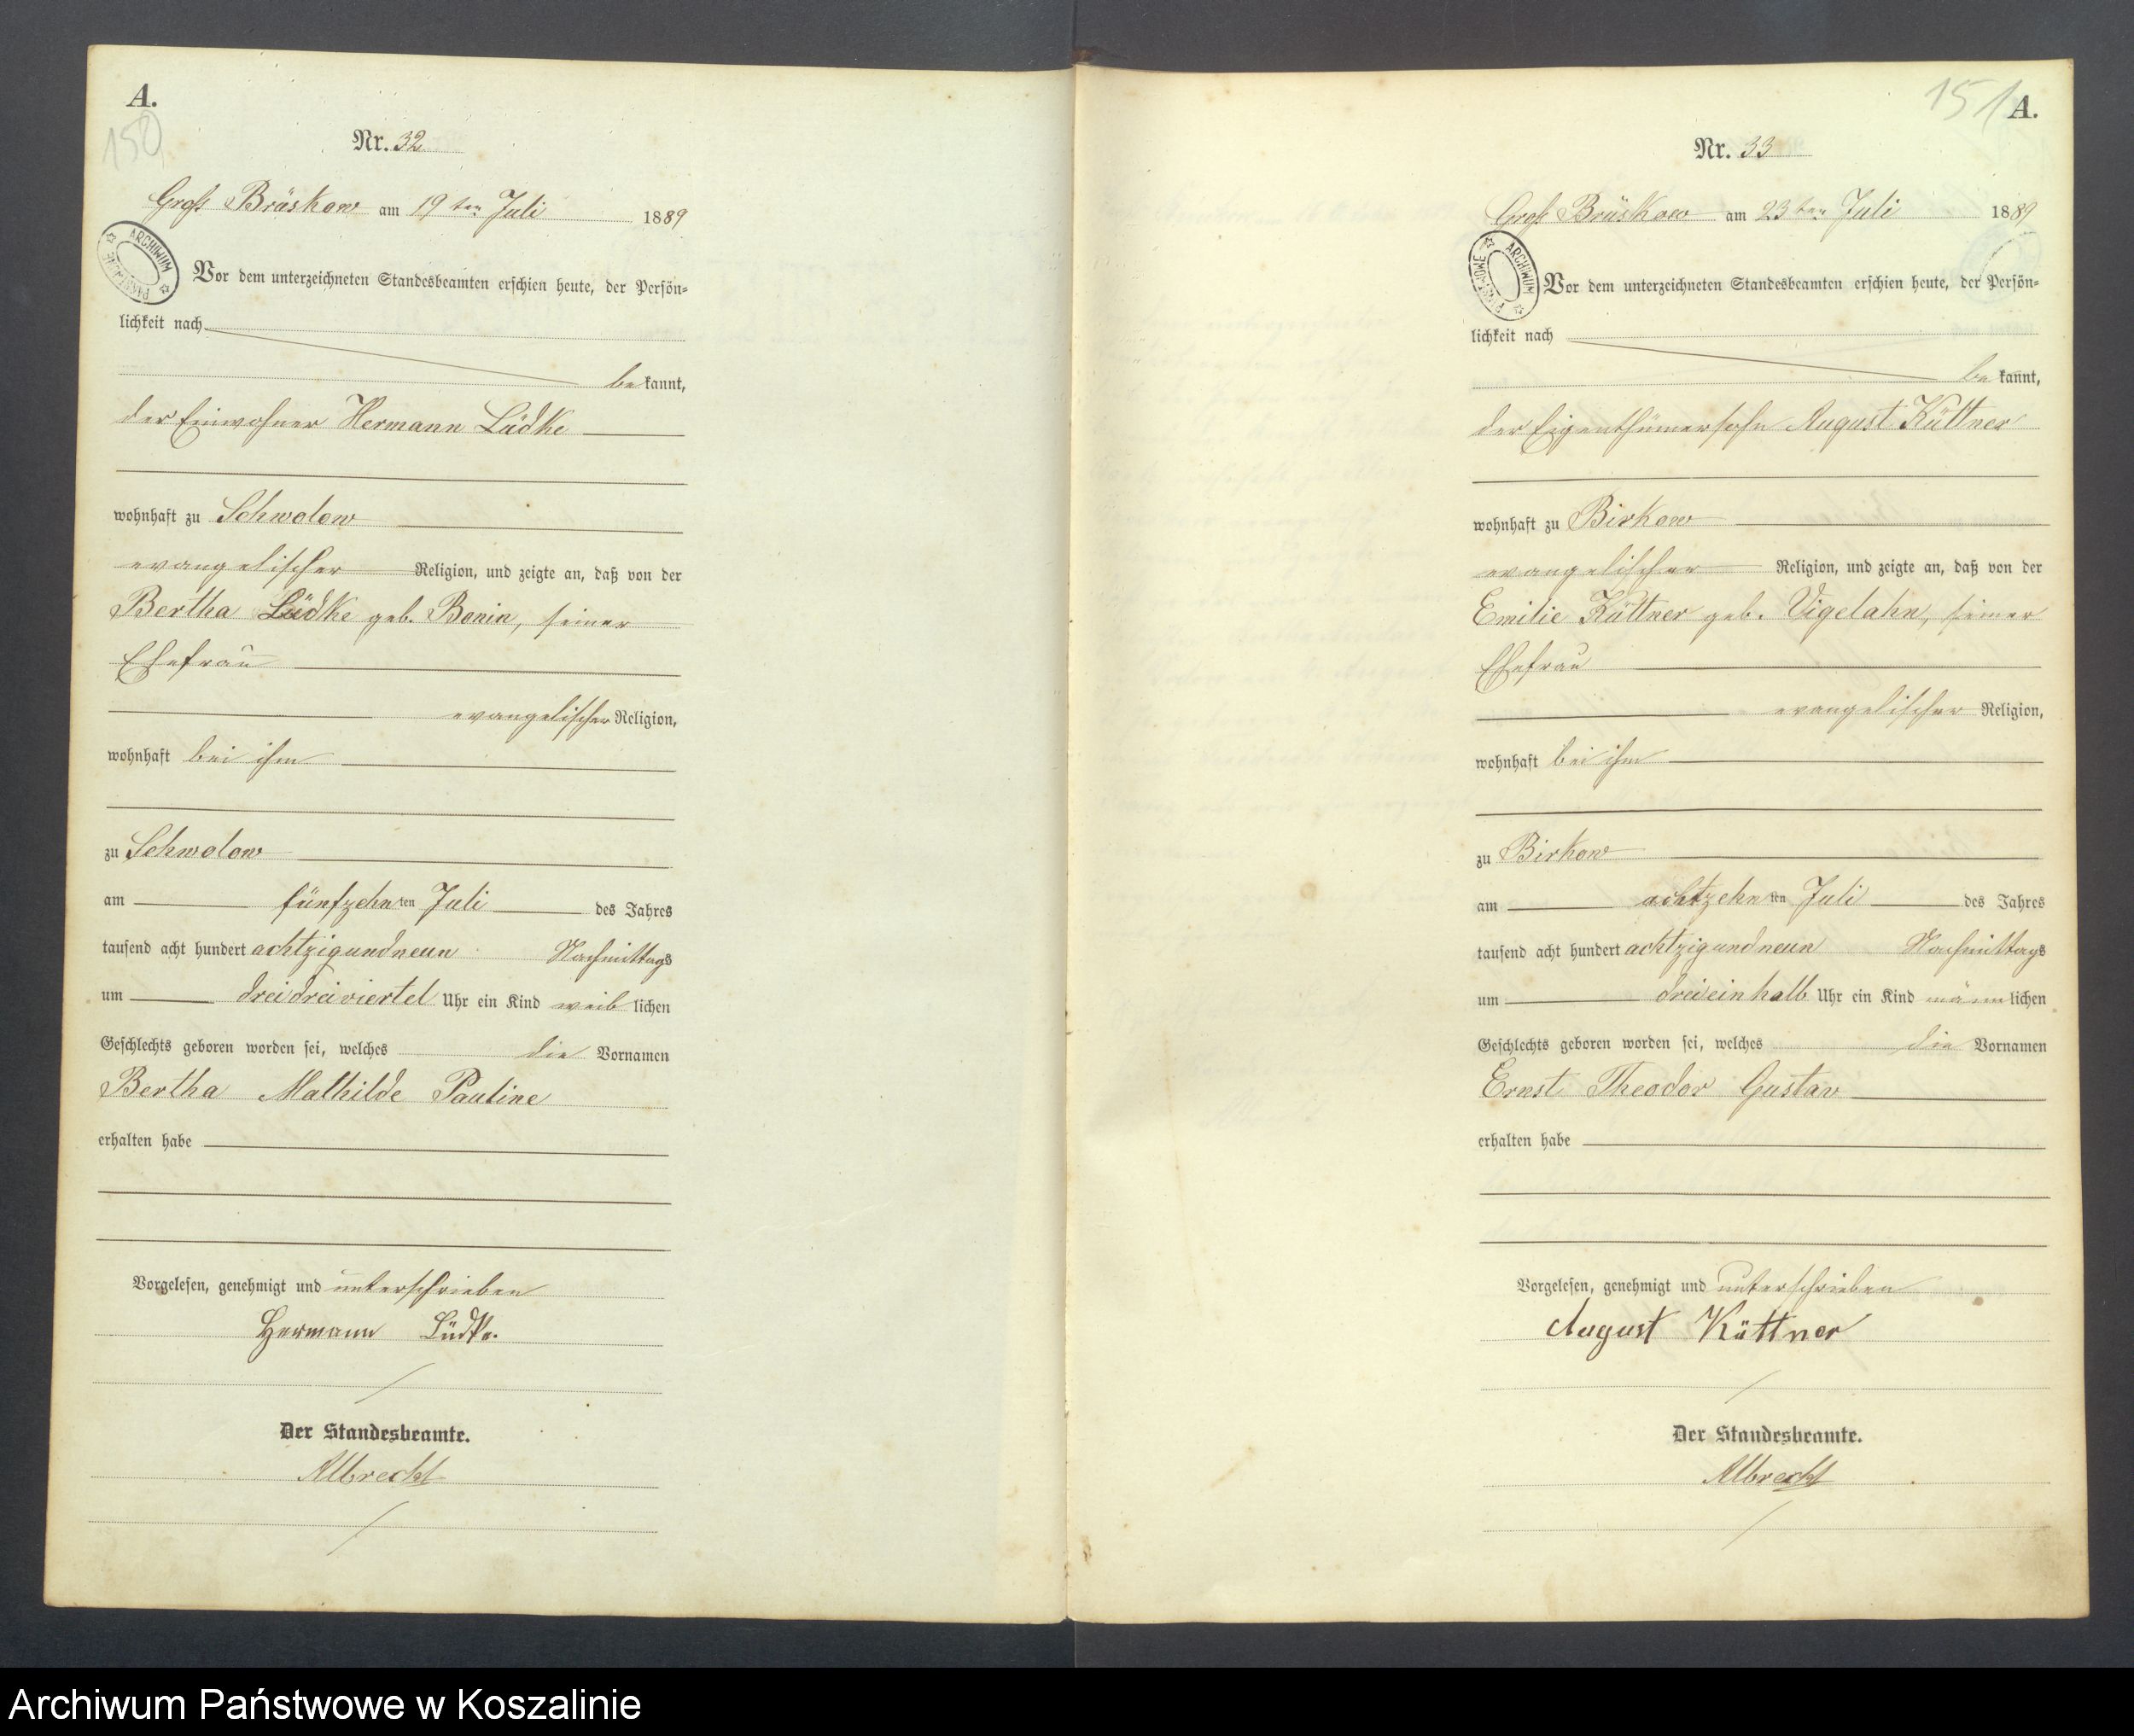 A.
150
Nr. 32
Groß Brüskow am 19ten Juli 1889
ARCHIWUM PAŃSTWOWE
Vor dem unterzeichneten Standesbeamten erschien heute, der Persön=
lichkeit nach
be kannt,
der Einwohner Hermann Lüdke
wohnhaft zu Schwolow
evangelischer Religion, und zeigte an, daß von der
Bertha Lüdke geb. Bonin, seiner
Ehefrau
evangelischer Religion,
wohnhaft bei ihm
zu Schwolow
am fünfzehnten Juli des Jahres
tausend acht hundert achtzigundneun Nachmittags
um dreidreiviertel Uhr ein Kind weib lichen
Geschlechts geboren worden sei, welches die Vornamen
Bertha Mathilde Pauline
erhalten habe
Vorgelesen, genehmigt und unterschrieben
Hermann Lüdke.
Der Standesbeamte.
Albrecht
151
A.
Nr. 33
Groß Brüskow am 23ten Juli 1889
ARCHIWUM PAŃSTWOWE
Vor dem unterzeichneten Standesbeamten erschien heute, der Persön=
lichkeit nach
be kannt,
der Eigenthümersohn August Küttner
wohnhaft zu Birkow
evangelischer Religion, und zeigte an, daß von der
Emilie Küttner geb. Vigelahn, seiner
Ehefrau
evangelischer Religion,
wohnhaft bei ihm
zu Birkow
am achtzehnten Juli des Jahres
tausend acht hundert achtzigundneun Nachmittags
um dreieinhalb Uhr ein Kind männlichen
Geschlechts geboren worden sei, welches die Vornamen
Ernst Theodor Gustav
erhalten habe
Vorgelesen, genehmigt und unterschrieben
August Küttner
Der Standesbeamte.
Albrecht
Archiwum Państwowe w Koszalinie